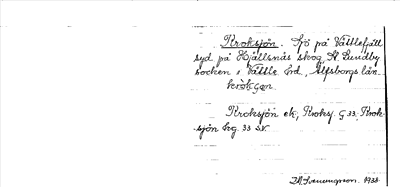 Kroksjön. Sjö på Vättlefjäll
syd på Hjällsnäs skog, St. Lundby
socken i Vättle hrd, Älfsborgs län
krökʃøn
Kroksjön ek, Kroksj. G 33, Krok-
sjön hg. 33 SV
1933.